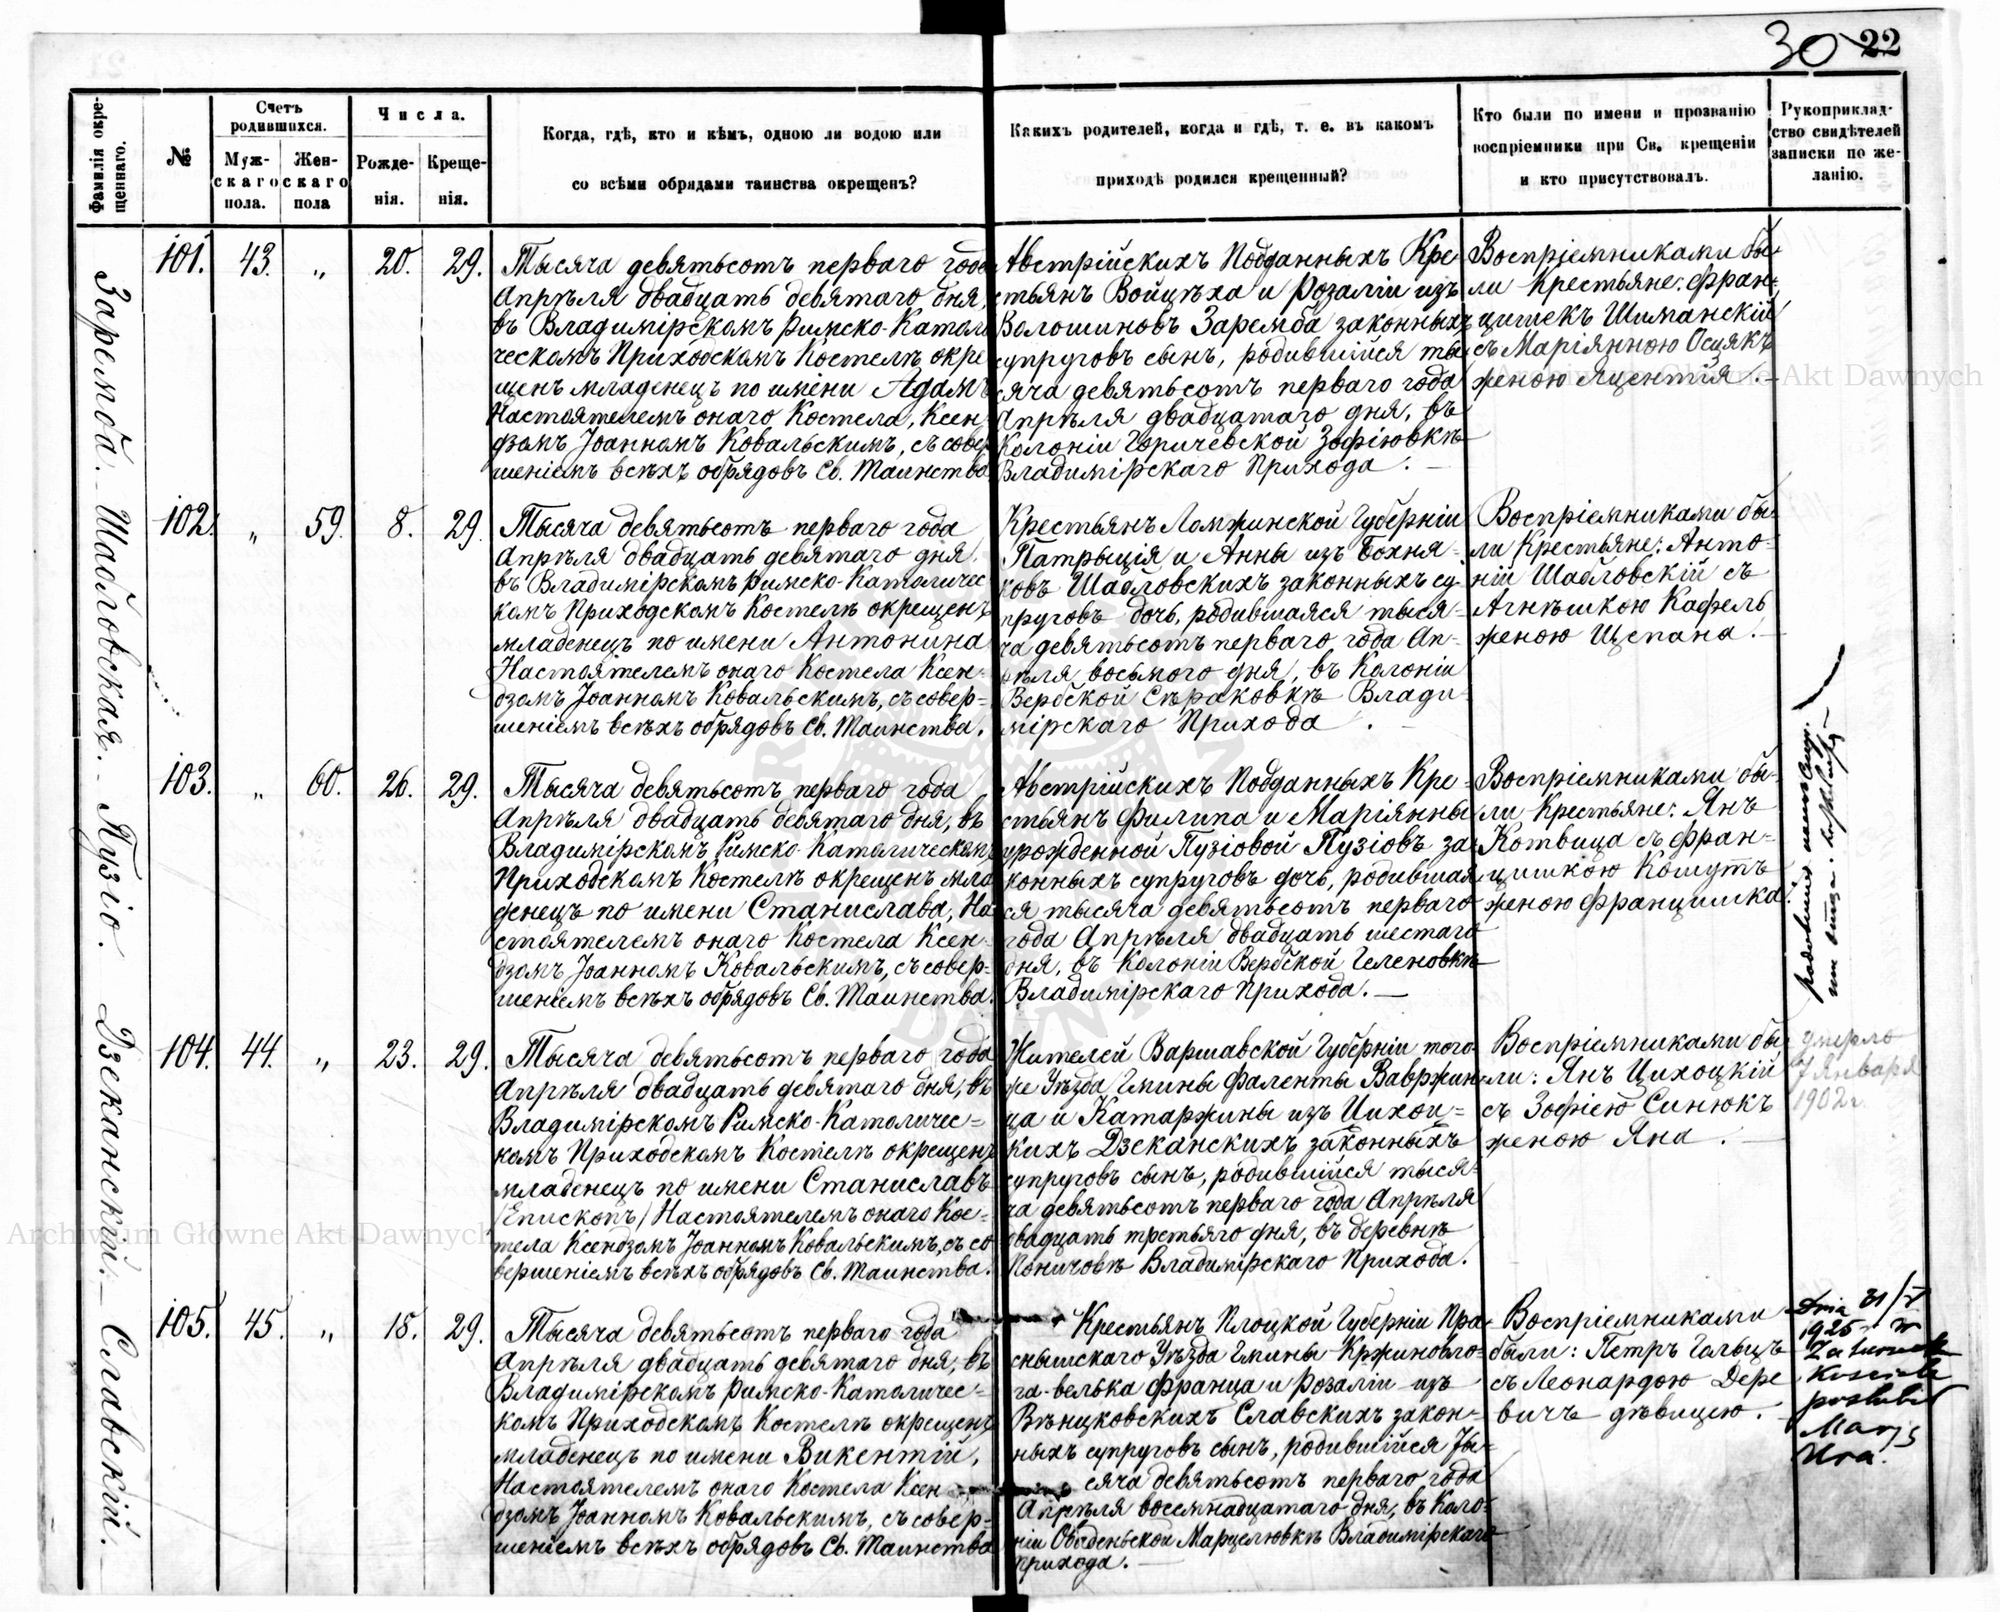 30 22
Фамилія окре-
щеннаго.
№
Счетъ
родившихся.
Муж-
скаго
пола.
Жен-
скаго
пола
Числа.
Рожде-
нія.
Креще-
нія.
Когда, гдѣ, кто и кѣмъ, одною ли водою или
со всѣми обрядами таинства окрещенъ?
Какихъ родителей, когда и гдѣ, т. е. въ какомъ
приходѣ родился крещенный?
Кто были по имени и прозванію
воспріемники при Св. крещеніи
и кто присутствовалъ.
Рукоприклад-
ство свидѣтелей
записки по же-
ланію.
Заремба. — Шабловская. — Пузіо. Дзеканскій. — Славскій.
101. 43. „ 20. 29.
Тысяча девятьсотъ перваго года
Апрѣля двадцать девятаго дня,
въ Владимірскомъ Римско-Католи
ческомъ Приходскомъ Костелѣ окре
щенъ младенецъ по имени Адамъ
Настоятелемъ онаго Костела, Ксен-
дзомъ Іоанномъ Ковальскимъ, съ совер
шеніемъ всѣхъ обрядовъ Св. Таинства
Австрійскихъ Подданныхъ Кре
стьянъ Войцѣха и Розаліи изъ
Волошиновъ Заремба законныхъ
супруговъ сынъ, родившійся ты
сяча девятьсотъ перваго года
Апрѣля двадцатаго дня, въ
Колоніи Горичевской Зофіювкѣ
Владимірскаго Прихода. —
Воспріемниками бы-
ли Крестьяне: Фран-
цишекъ Шиманскій
съ Маріянною Осцякъ
женою Яцентія. —
102. „ 59. 8. 29.
Тысяча девятьсотъ перваго года
Апрѣля двадцать девятаго дня,
въ Владимірскомъ Римско-Католичес
комъ Приходскомъ Костелѣ окрещенъ
младенецъ по имени Антонина
Настоятелемъ онаго Костела Ксен-
дзомъ Іоанномъ Ковальскимъ, съ совер-
шеніемъ всѣхъ обрядовъ Св. Таинства.
Крестьянъ Ломжинской Губерніи
Патрыція и Анны изъ Бохня-
ковъ Шабловскихъ законныхъ су-
пруговъ дочь, родившаяся тыся-
ча девятьсотъ перваго года Ап-
рѣля восьмого дня, въ Колоніи
Вербской Сѣраковкѣ Влади-
мірскаго Прихода. —
Воспріемниками бы-
ли Крестьяне: Анто-
ній Шабловскій съ
Агнѣшкою Кафель
женою Щепана. —
103. „ 60. 26. 29.
Тысяча девятьсотъ перваго года
Апрѣля двадцать девятаго дня, въ
Владимірскомъ Римско-Католическомъ
Приходскомъ Костелѣ окрещенъ мла
денецъ по имени Станислава, На-
стоятелемъ онаго Костела Ксен-
дзомъ Іоанномъ Ковальскимъ, съ совер-
шеніемъ всѣхъ обрядовъ Св. Таинства.
Австрійскихъ Подданныхъ Кре-
стьянъ Филипа и Маріянны
урожденной Пузіовой Пузіовъ за-
конныхъ супруговъ дочь, родившая
ся тысяча девятьсотъ перваго
года Апрѣля двадцать шестаго
дня, въ Колоніи Вербской Геленовкѣ
Владимірскаго Прихода. —
Воспріемниками бы-
ли Крестьяне: Янъ
Котвица съ Фран-
цишкою Кошутъ
женою Францишка.
104. 44. „ 23. 29.
Тысяча девятьсотъ перваго года
Апрѣля двадцать девятаго дня, въ
Владимірскомъ Римско-Католичес-
комъ Приходскомъ Костелѣ окрещенъ
младенецъ по имени Станиславъ
/Епископъ/ Настоятелемъ онаго Кос-
тела Ксендзомъ Іоанномъ Ковальскимъ, съ со
вершеніемъ всѣхъ обрядовъ Св. Таинства.
Жителей Варшавской Губерніи того-
же Уѣзда Гмины Фаленты Вавржин-
ца и Катаржины изъ Цихоц-
кихъ Дзеканскихъ законныхъ
супруговъ сынъ, родившійся тыся-
ча девятьсотъ перваго года Апрѣля
двадцать третьяго дня, въ деревнѣ
Поничовѣ Владимірскаго Прихода.
Воспріемниками бы
ли: Янъ Цихоцкій
съ Зофіею Синюкъ
женою Яна. —
умерло
7 Января
1902 г.
105. 45. „ 18. 29.
Тысяча девятьсотъ перваго года
Апрѣля двадцать девятаго дня, въ
Владимірскомъ Римско-Католичес-
комъ Приходскомъ Костелѣ окрещенъ
младенецъ по имени Викентій,
Настоятелемъ онаго Костела Ксен
дзомъ Іоанномъ Ковальскимъ, съ совер-
шеніемъ всѣхъ обрядовъ Св. Таинства
Крестьянъ Плоцкой Губерніи Пра-
снышскаго Уѣзда Гмины Кржиновло-
га-велька Франца и Розаліи изъ
Вѣнцковскихъ Славскихъ закон-
ныхъ супруговъ сынъ, родившійся Ты-
сяча девятьсотъ перваго года
Апрѣля восемнадцатаго дня, въ Коло-
ніи Овадненьской Марцелювкѣ Владимірскаго
прихода. —
Воспріемниками
были: Петръ Гольцъ
съ Леонардою Дере
вичъ дѣвицею. —
Dnia 31/V
1925 r. w
Kościele
poślubił
Marję
Archiwum Główne Akt Dawnych
Archiwum Główne Akt Dawnych